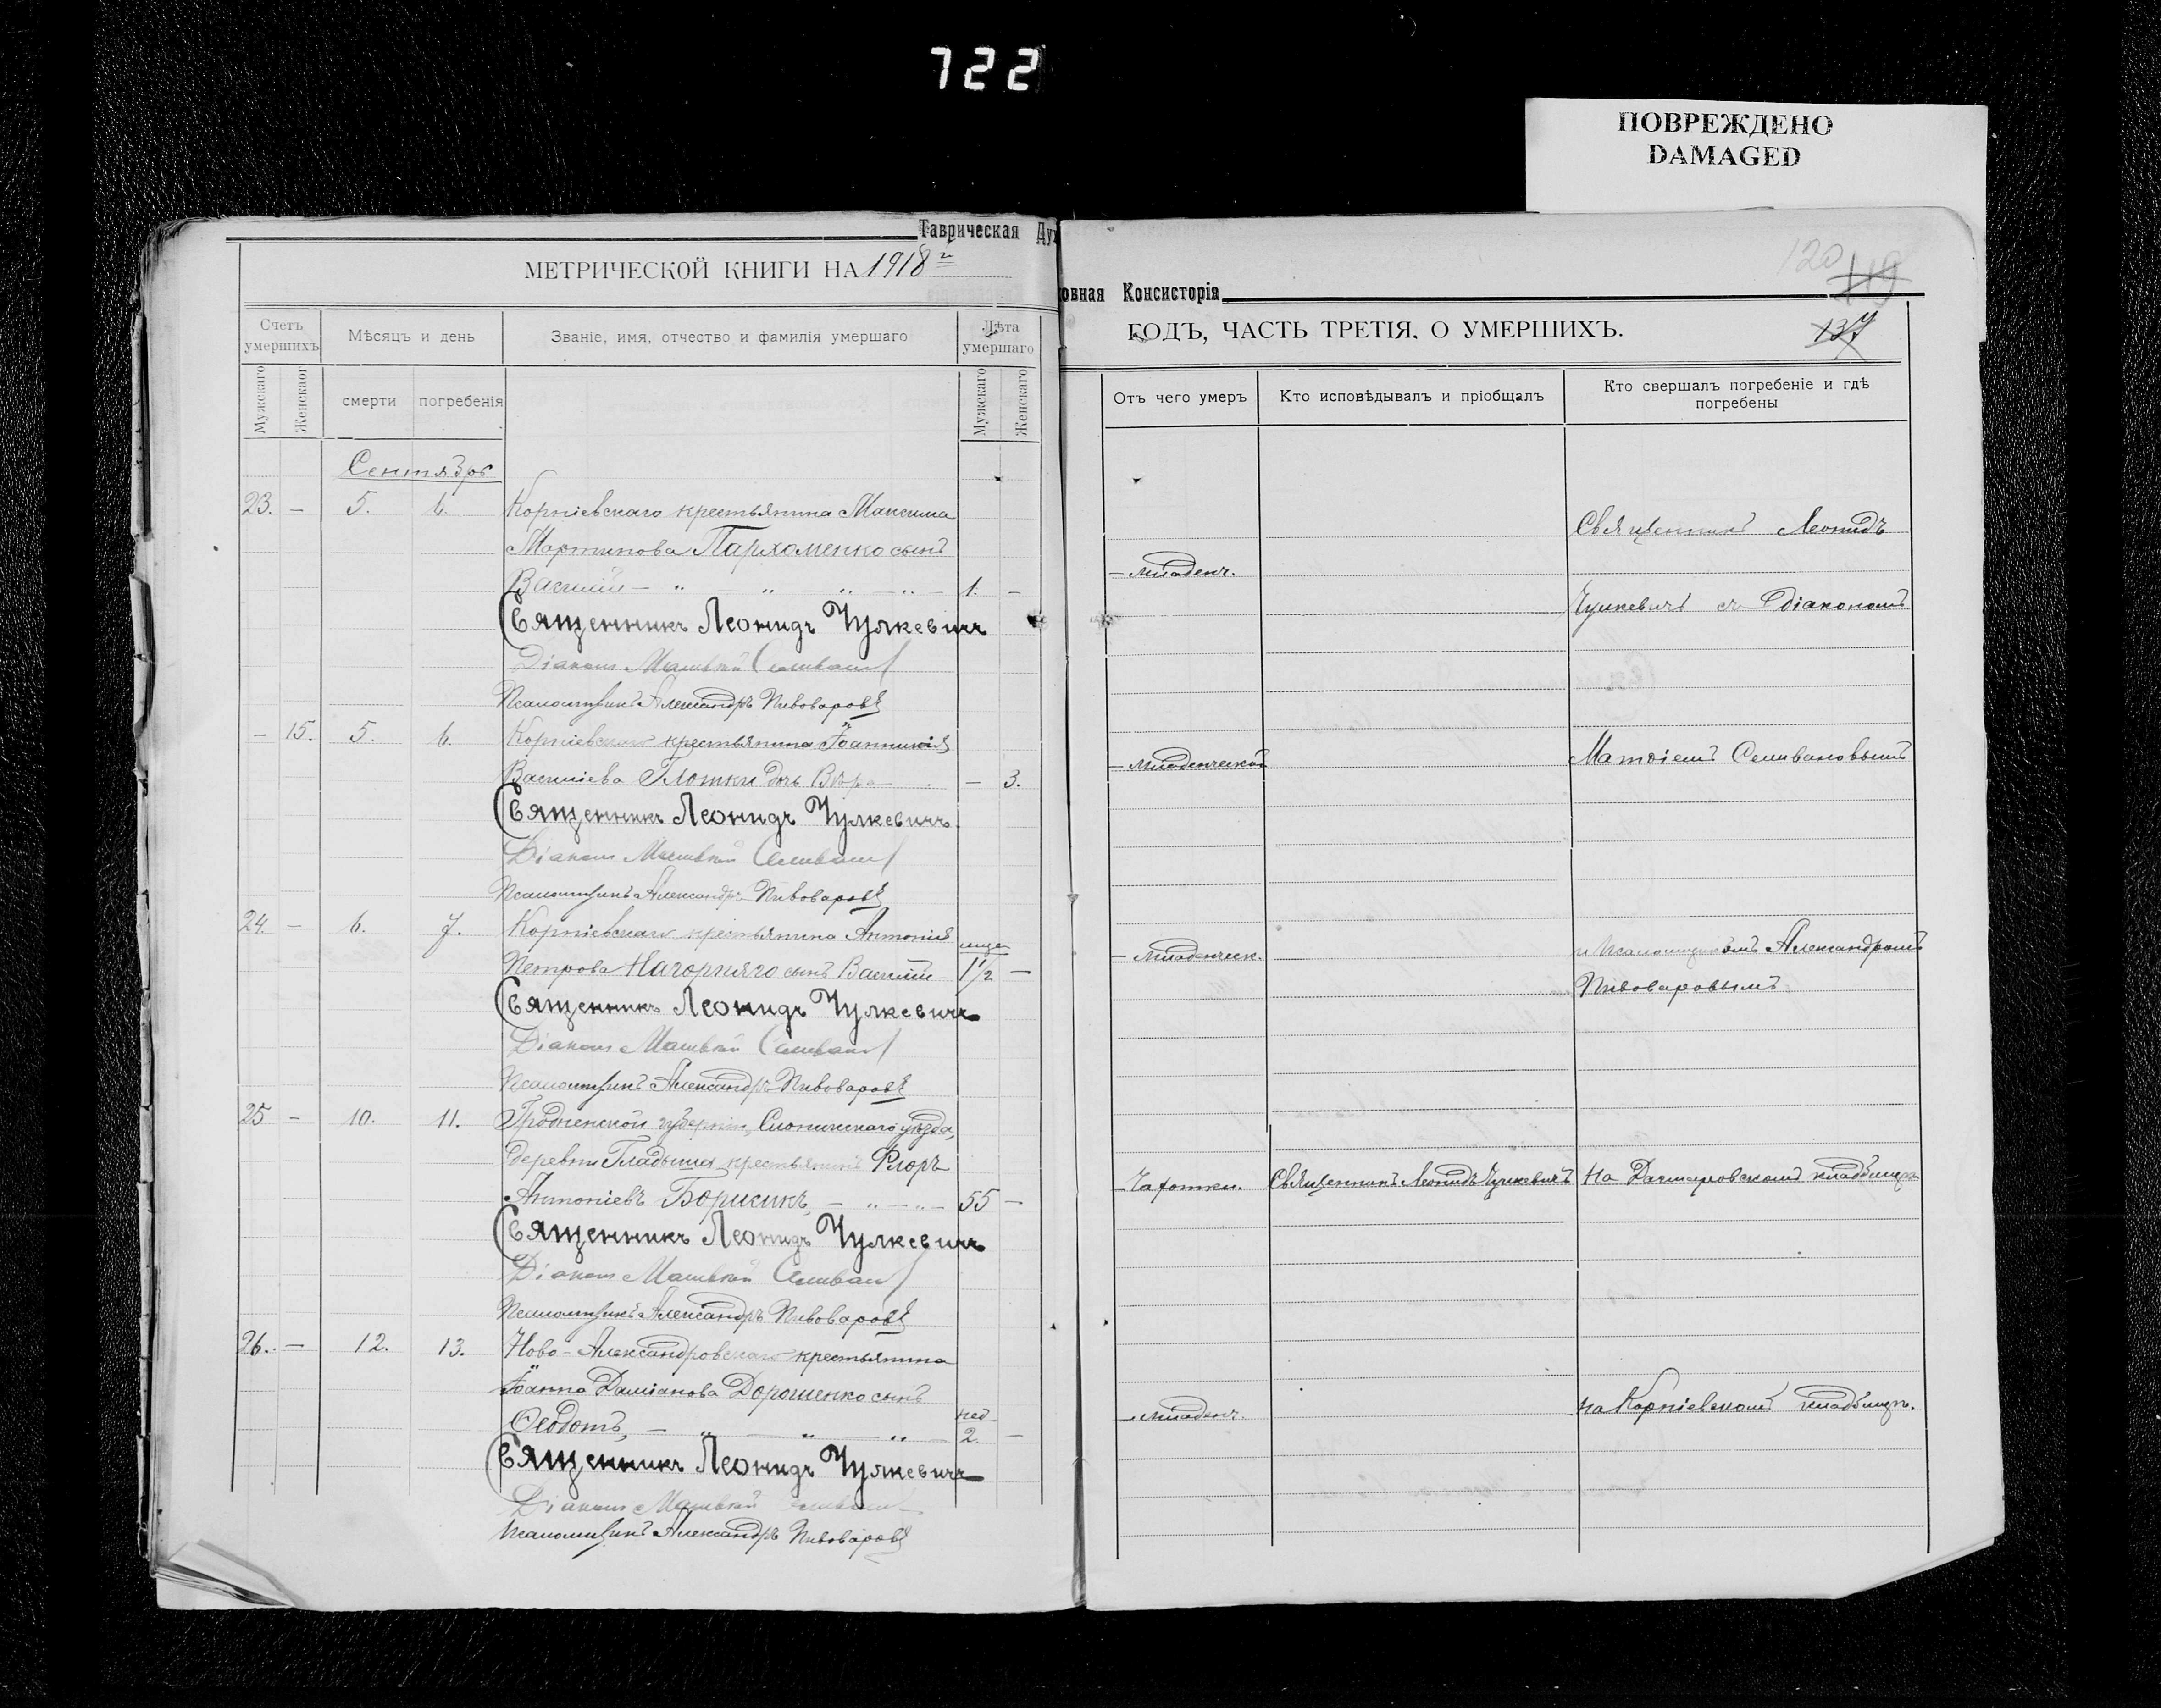 722
ПОВРЕЖДЕНО
DAMAGED
Таврическая Дух
МЕТРИЧЕСКОЙ КНИГИ НА 1918 г.
Счетъ умершихъ
Мѣсяцъ и день
Званіе, имя, отчество и фамилія умершаго
Лѣта умершаго
Мужскаго
Женскаог
смерти
погребенія
Мужскаго
Женскаго
Сентябрь
23. — 5. 6. Корніевскаго крестьянина Максима
Мартинова Пархоменко сынъ
Василій — " " " " — 1. —
Священникъ Леонидъ Чулкевичъ
Діаконъ Матѳей Селиванов
Псаломщикъ Александръ Пивоваровъ
— 15. 5. 6. Корніевскаго крестьянина Іоанникія
Василіева Глотки дочь Вѣра — 3.
Священникъ Леонидъ Чулкевичъ
Діаконъ Матѳей Селиванов
Псаломщикъ Александръ Пивоваровъ
24. — 6. 7. Корніевскаго крестьянина Антонія
Петрова Нагорняго сынъ Василій 1 1/2 —
Священникъ Леонидъ Чулкевичъ
Діаконъ Матѳей Селиванов
Псаломщикъ Александръ Пивоваровъ
25 — 10. 11. Гродненской губерніи, Слонимскаго уѣзда,
деревни Гладыша крестьянинъ Флоръ
Антоніевъ Борисикъ, — " — " — 55 —
Священникъ Леонидъ Чулкевичъ
Діаконъ Матѳей Селиванов
Псаломщикъ Александръ Пивоваровъ
26. — 12. 13. Ново-Александровскаго крестьянина
Іоанна Даміанова Дорошенко сынъ
нед.
Ѳеодотъ, — " — " — " — 2. —
Священникъ Леонидъ Чулкевичъ
Діаконъ Матѳей Селиванов
Псаломщикъ Александръ Пивоваровъ
120
119
овная Консисторія
ГОДЪ, ЧАСТЬ ТРЕТІЯ. О УМЕРШИХЪ.
137
Отъ чего умеръ
Кто исповѣдывалъ и пріобщалъ
Кто свершалъ погребеніе и гдѣ погребены
Священникъ Леонидъ
— младенч.
Чулкевичъ съ діакономъ
— младенческой
Матѳіемъ Селивановымъ
— младенческ.
и псаломщикомъ Александромъ
Пивоваровымъ
Чахотки.
Священникъ Леонидъ Чулкевичъ
На кладбищѣ
младенч.
на Корніевскомъ кладбищѣ.